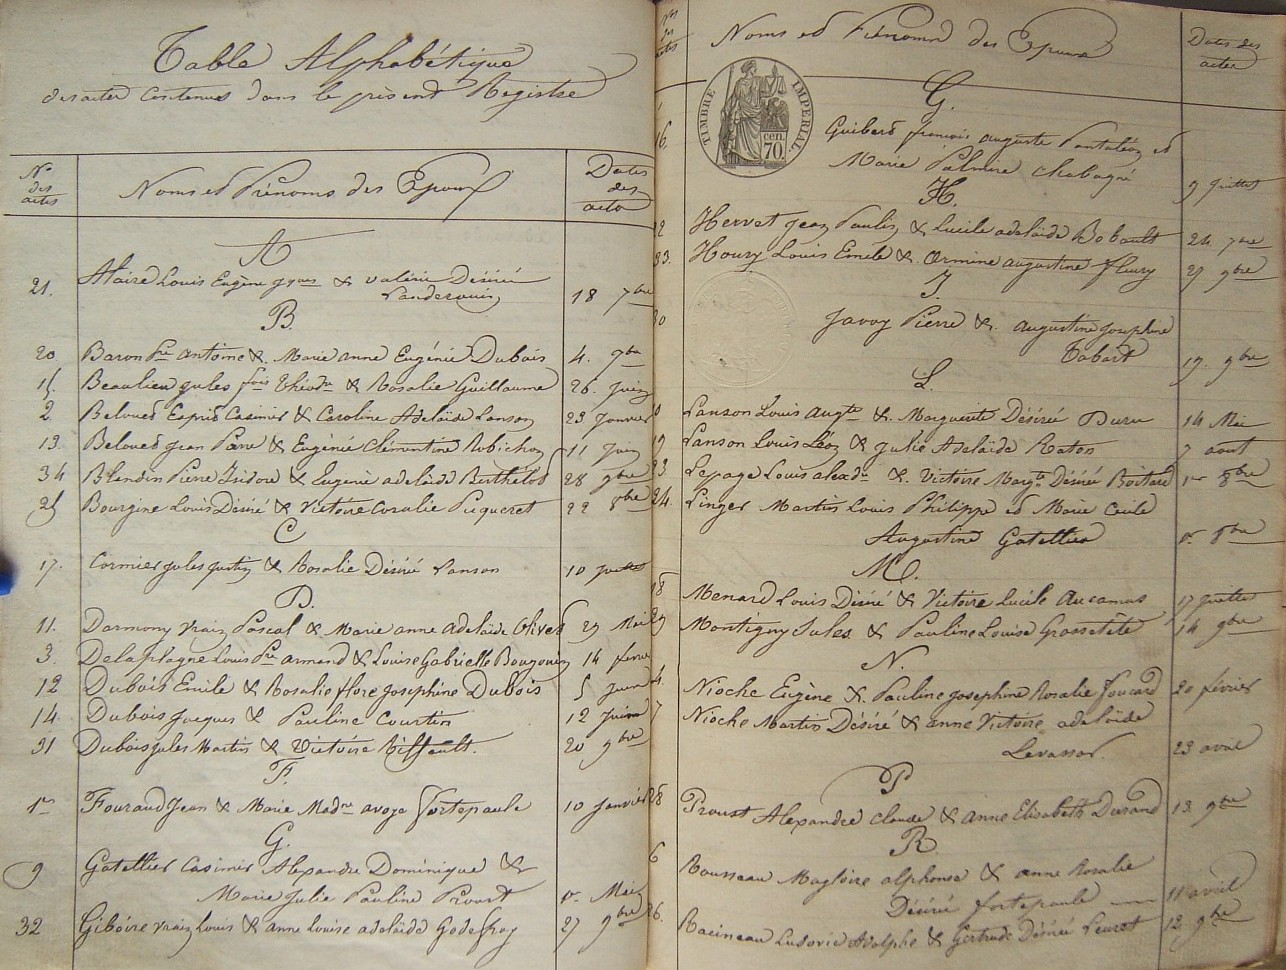 Table Alphabétique
des actes contenus dans le présent Registre
Nos des actes
Noms et Prénoms des Epoux
Dates des actes
A
21. Alaire Louis Eugène & Valérie Désirée
18 7bre
B.
20 Baron Pre Antoine & Marie Anne Eugénie Dubois 4. 9bre
15 Beaulieu Jules fois Théodre & Rosalie Guillaume 26. Juin
2. Beloued Esprit Casimir & Caroline Adelaïde Lanson 23 Janvier
13. Beloued Jean Pierre & Eugénie Clémentine Ubichon 11 Juin
34 Blondin Pierre Isidore & Eugénie adelaïde Berthelot 28 9bre
25 Bourgine Louis Désiré & Victoire Coralie Picqueret 22 8bre
C
17. Cormier Jules Justin & Rosalie Désirée Lanson 10 Juillet
D.
11. Darmony Vrain Pascal & Marie anne adelaïde Olivet 29 Mai
3. Delaplagne Louis Pre armand & Louise Gabrielle Bougouin 14 février
12 Dubois Emile & Rosalie flore Josephine Dubois 5 Juin
14. Dubois Jacques & Pauline Courtin 12 Juin
31 Dubois Jules Martin & Victoire Tiffault. 20 9bre
F.
1er Fouraud Jean & Marie Madne avoye Fortepaule 10 Janvier
G.
9 Gatellier Casimir Alexandre Dominique &
Marie Julie Pauline Proust 1er Mai
32 Giboire Vrain Louis & Anne Louise adelaïde Godefroy 27 9bre
Nos des actes
Noms et Prénoms des Epoux
Dates des actes
TIMBRE IMPERIAL.
cen. 70.
G.
16. Guibert françois auguste Pantaléon et
Marie Palmire Chabagné 9 Juillet
H.
22 Hervet Jean Paulin & Lucile adelaïde Bobault 24 7bre
33. Houry Louis Emile & Armine augustine fleury 27 9bre
J.
30 Javoy Pierre & Augustine Josephine
Tabart 19. 9bre
L.
Lanson Louis Augte & Marguerite Désirée Duru 14 Mai
19 Lanson Louis Léon & Julie Adelaïde Raton 7 aout
23. Lepage Louis alexdre & Victoire Margte Désirée Boitard 1er 8bre
24. Linger Martin Louis Philippe et Marie Cecile
Augustine Gatellier 1er 8bre
M.
18 Menard Louis Désiré & Victoire Lucile Aucamus 17 Juillet
29 Montigny Jules & Pauline Louise Grossetête 14 9bre
N.
4. Nioche Eugène & Pauline Josephine Rosalie Foucard 20 février
7 Nioche Martin Désiré & anne Victoire adelaïde
Levassor. 23 avril
P
28 Proust Alexandre Claude & Anne Elisabeth Durand 13 9bre
R
6 Rousseau Magloire alphonse & anne Rosalie
Désirée fortepaule 11 avril
26. Racineau Ludovic Adolphe & Gertrude Désirée Leurot 12 9bre